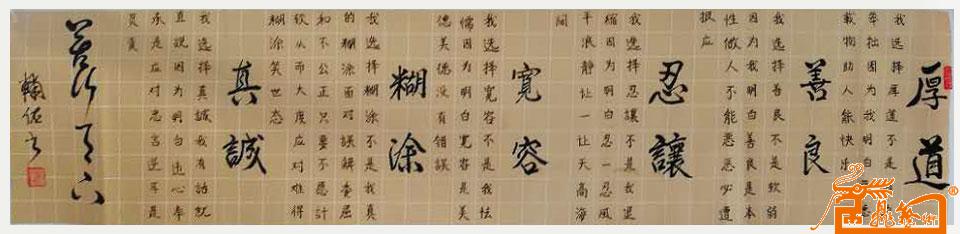 厚道
我选择厚道不是
笨拙因为我明白
载物助人能快乐
善良
我选择善良不是软弱
因为我明白善良是本
性做人不能恶恶必遭
报应
忍讓
我选择忍讓不是我退
缩因为明白忍一忍风
平浪静让一让天高海
阔
寬容
我选择宽容不是我怯
懦因为明白宽容是美
德美德没有错误
糊涂
我选择糊涂不是我真
的糊涂面对误解委屈
和不公正只要不愿计
较从而大度应对难得
糊涂笑世态
真誠
我选择真誠我有話就
直說因为明白 心奉
承是应对忠言逆耳是
負責